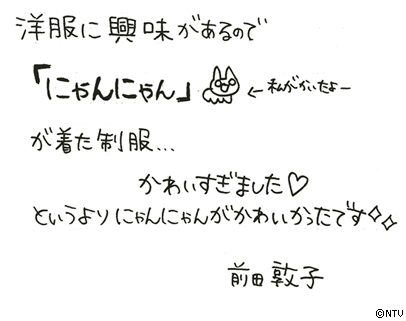 洋服に興味があるので
「にゃんにゃん」 ←私がかいたよー
が着た制服...
かわいすぎました♡
というよりにゃんにゃんがかわいかったです✧✧
前田敦子
©NTV